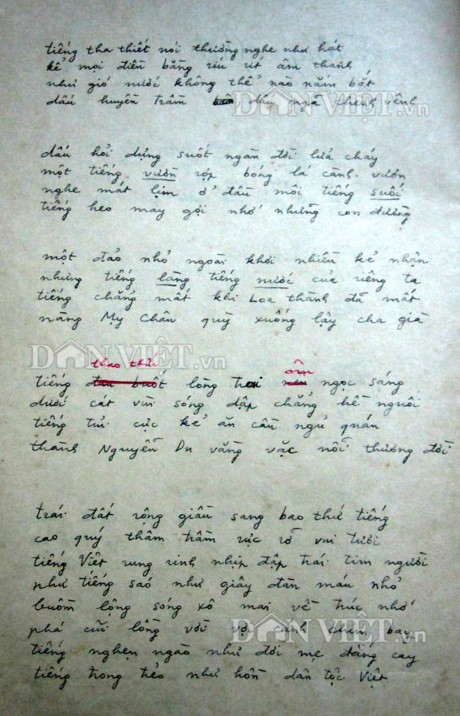 tiếng tha thiết nói thường nghe như hát
kể mọi điều bằng ríu rít âm thanh
như gió nước không thể nào nắm bắt
dấu huyền trầm dấu ngã chênh vênh
DANVIET.vn
dấu hỏi dựng suốt ngàn đời lửa cháy
một tiếng vườn rợp bóng lá cành vươn
nghe mát lịm ở đầu môi tiếng suối
tiếng heo may gợi nhớ những con đường
một đảo nhỏ ngoài khơi nhiều kẻ nhận
nhưng tiếng làng tiếng nước của riêng ta
tiếng chẳng mất khi Loa thành đã mất
nàng Mỵ Châu quỳ xuống lậy cha già
DANVIET.vn
thao thức ôm
tiếng lòng trai ngọc sáng
dưới cát vùi sóng dập chẳng hề nguôi
tiếng tủi cực kẻ ăn cầu ngủ quán
thành Nguyễn Du vằng vặc nỗi thương đời
trái đất rộng giầu sang bao thứ tiếng
cao quý thâm trầm rực rỡ vui tươi
tiếng Việt rung rinh nhịp đập trái tim người
như tiếng sáo như giây đàn máu nhỏ
buồm lộng sóng xô mai về trúc nhớ
phá cũi lồng vời vợi cánh chim bay
DANVIET.vn
tiếng nghẹn ngào như đời mẹ đắng cay
tiếng trong trẻo như hồn dân tộc Việt